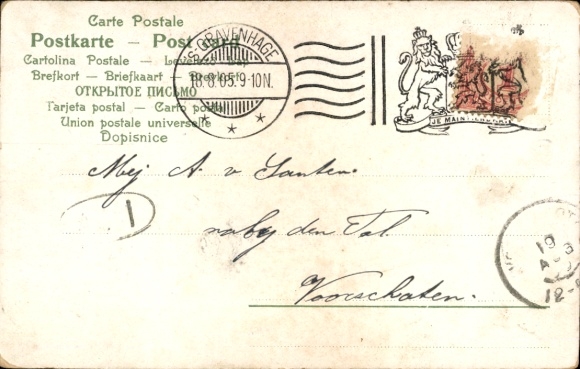 Carte Postale
Postkarte – Post card
Cartolina Postale –
Brefkort – Briefkaart –
ОТКРЫТОЕ ПИСЬМО
Tarjeta postal – Carto postal
Union postale universelle
Dopisnice
'S-GRAVENHAGE
18.8.05.9-10N.
JE MAINTIENDRAI
Mej A. v. Santen.
naby den Tol
Voorschoten.
1
19
12